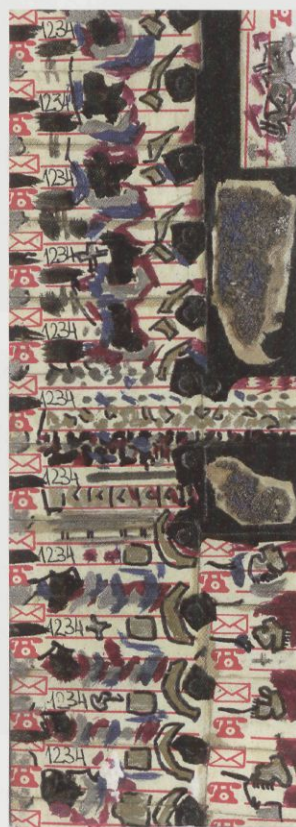 1234
1234
1234
1234
1234
1234
1234
1234
1234
1234